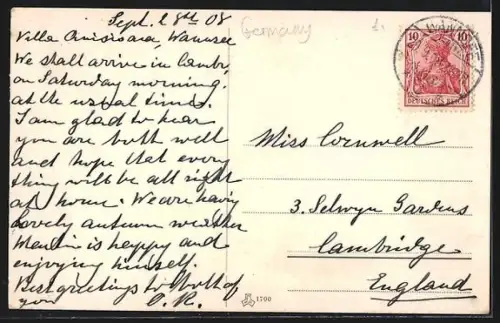 Sept. 28th 08
Villa Wannsee
We shall arrive in Camb.
on Saturday morning.
at the usual times.
I am glad to hear
you are both well
and hope that every
thing will be all right
at home. We are having
lovely autumn weather
Martin is happy and
enjoying himself.
Best greetings to both of
you
Germany
1.
10 10
DEUTSCHES REICH
Miss Cornwell
3. Selwyn Gardens
Cambridge
England
1700